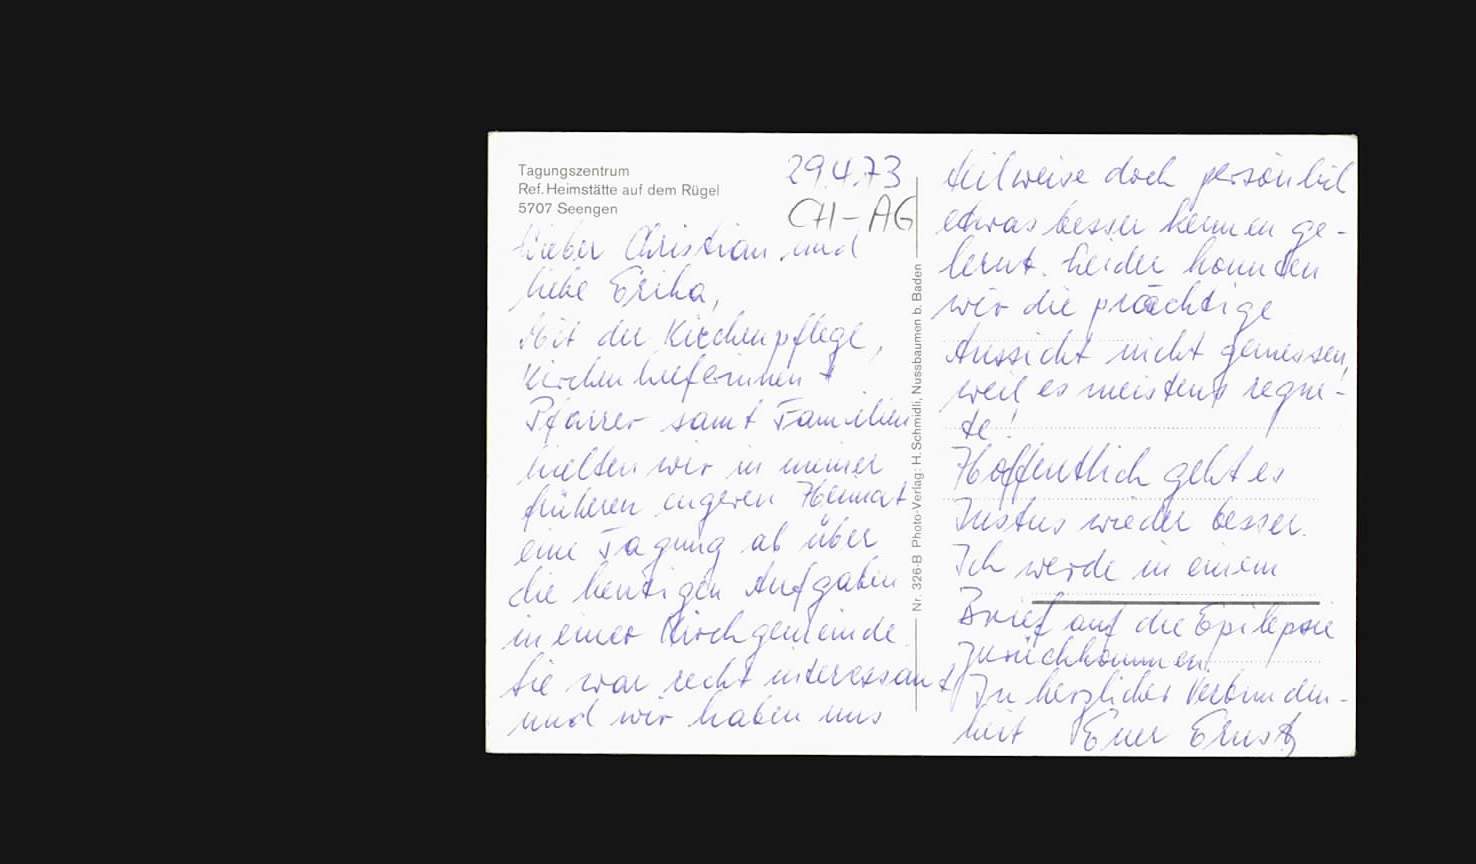 Tagungszentrum
Ref. Heimstätte auf dem Rügel
5707 Seengen
29.4.73
CH-AG
Lieber Christian und
liebe Erika,
Mit der Kirchenpflege,
Kirchenhelferinnen +
Pfarrer samt Familien
hielten wir in meiner
früheren engeren Heimat
eine Tagung ab über
die heutigen Aufgaben
in einer Kirchgemeinde.
Sie war recht interessant,
und wir haben uns
Nr. 326-B Photo-Verlag: H. Schmidli, Nussbaumen b. Baden
teilweise doch persönlich
etwas besser kennen ge-
lernt. Leider konnten
wir die prächtige
Aussicht nicht geniessen,
weil es meistens regne-
te!
Hoffentlich geht es
Justus wieder besser.
Ich werde in einem
Brief auf die Epilepsie
zurückkommen.
In herzlicher Verbunden-
heit Euer Ernst